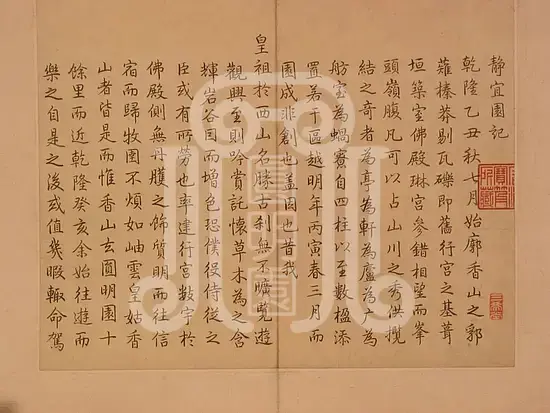 静宜園記
乾隆乙丑秋七月始廓香山之郛
薙榛莽剔瓦礫即舊行宮之基葺
垣築室佛殿琳宮參錯相望而峯
頭嶺腹凡可以占山川之秀供攬
結之奇者為亭為軒為廬為广為
舫室為蝸寮自四柱以至數楹添
置若干區越明年丙寅春三月而
園成非創也盖因也昔我
皇祖於西山名勝古刹無不曠覽遊
觀興至則吟賞託懷草木為之含
輝岩谷因而增色恐僕役侍從之
臣或有所勞也率建行宮數宇於
佛殿側無丹雘之飾質明而往信
宿而歸牧圉不煩如岫雲皇姑香
山者皆是而惟香山去圓明園十
餘里而近乾隆癸亥余始往遊而
樂之自是之後或值幾暇輒命駕